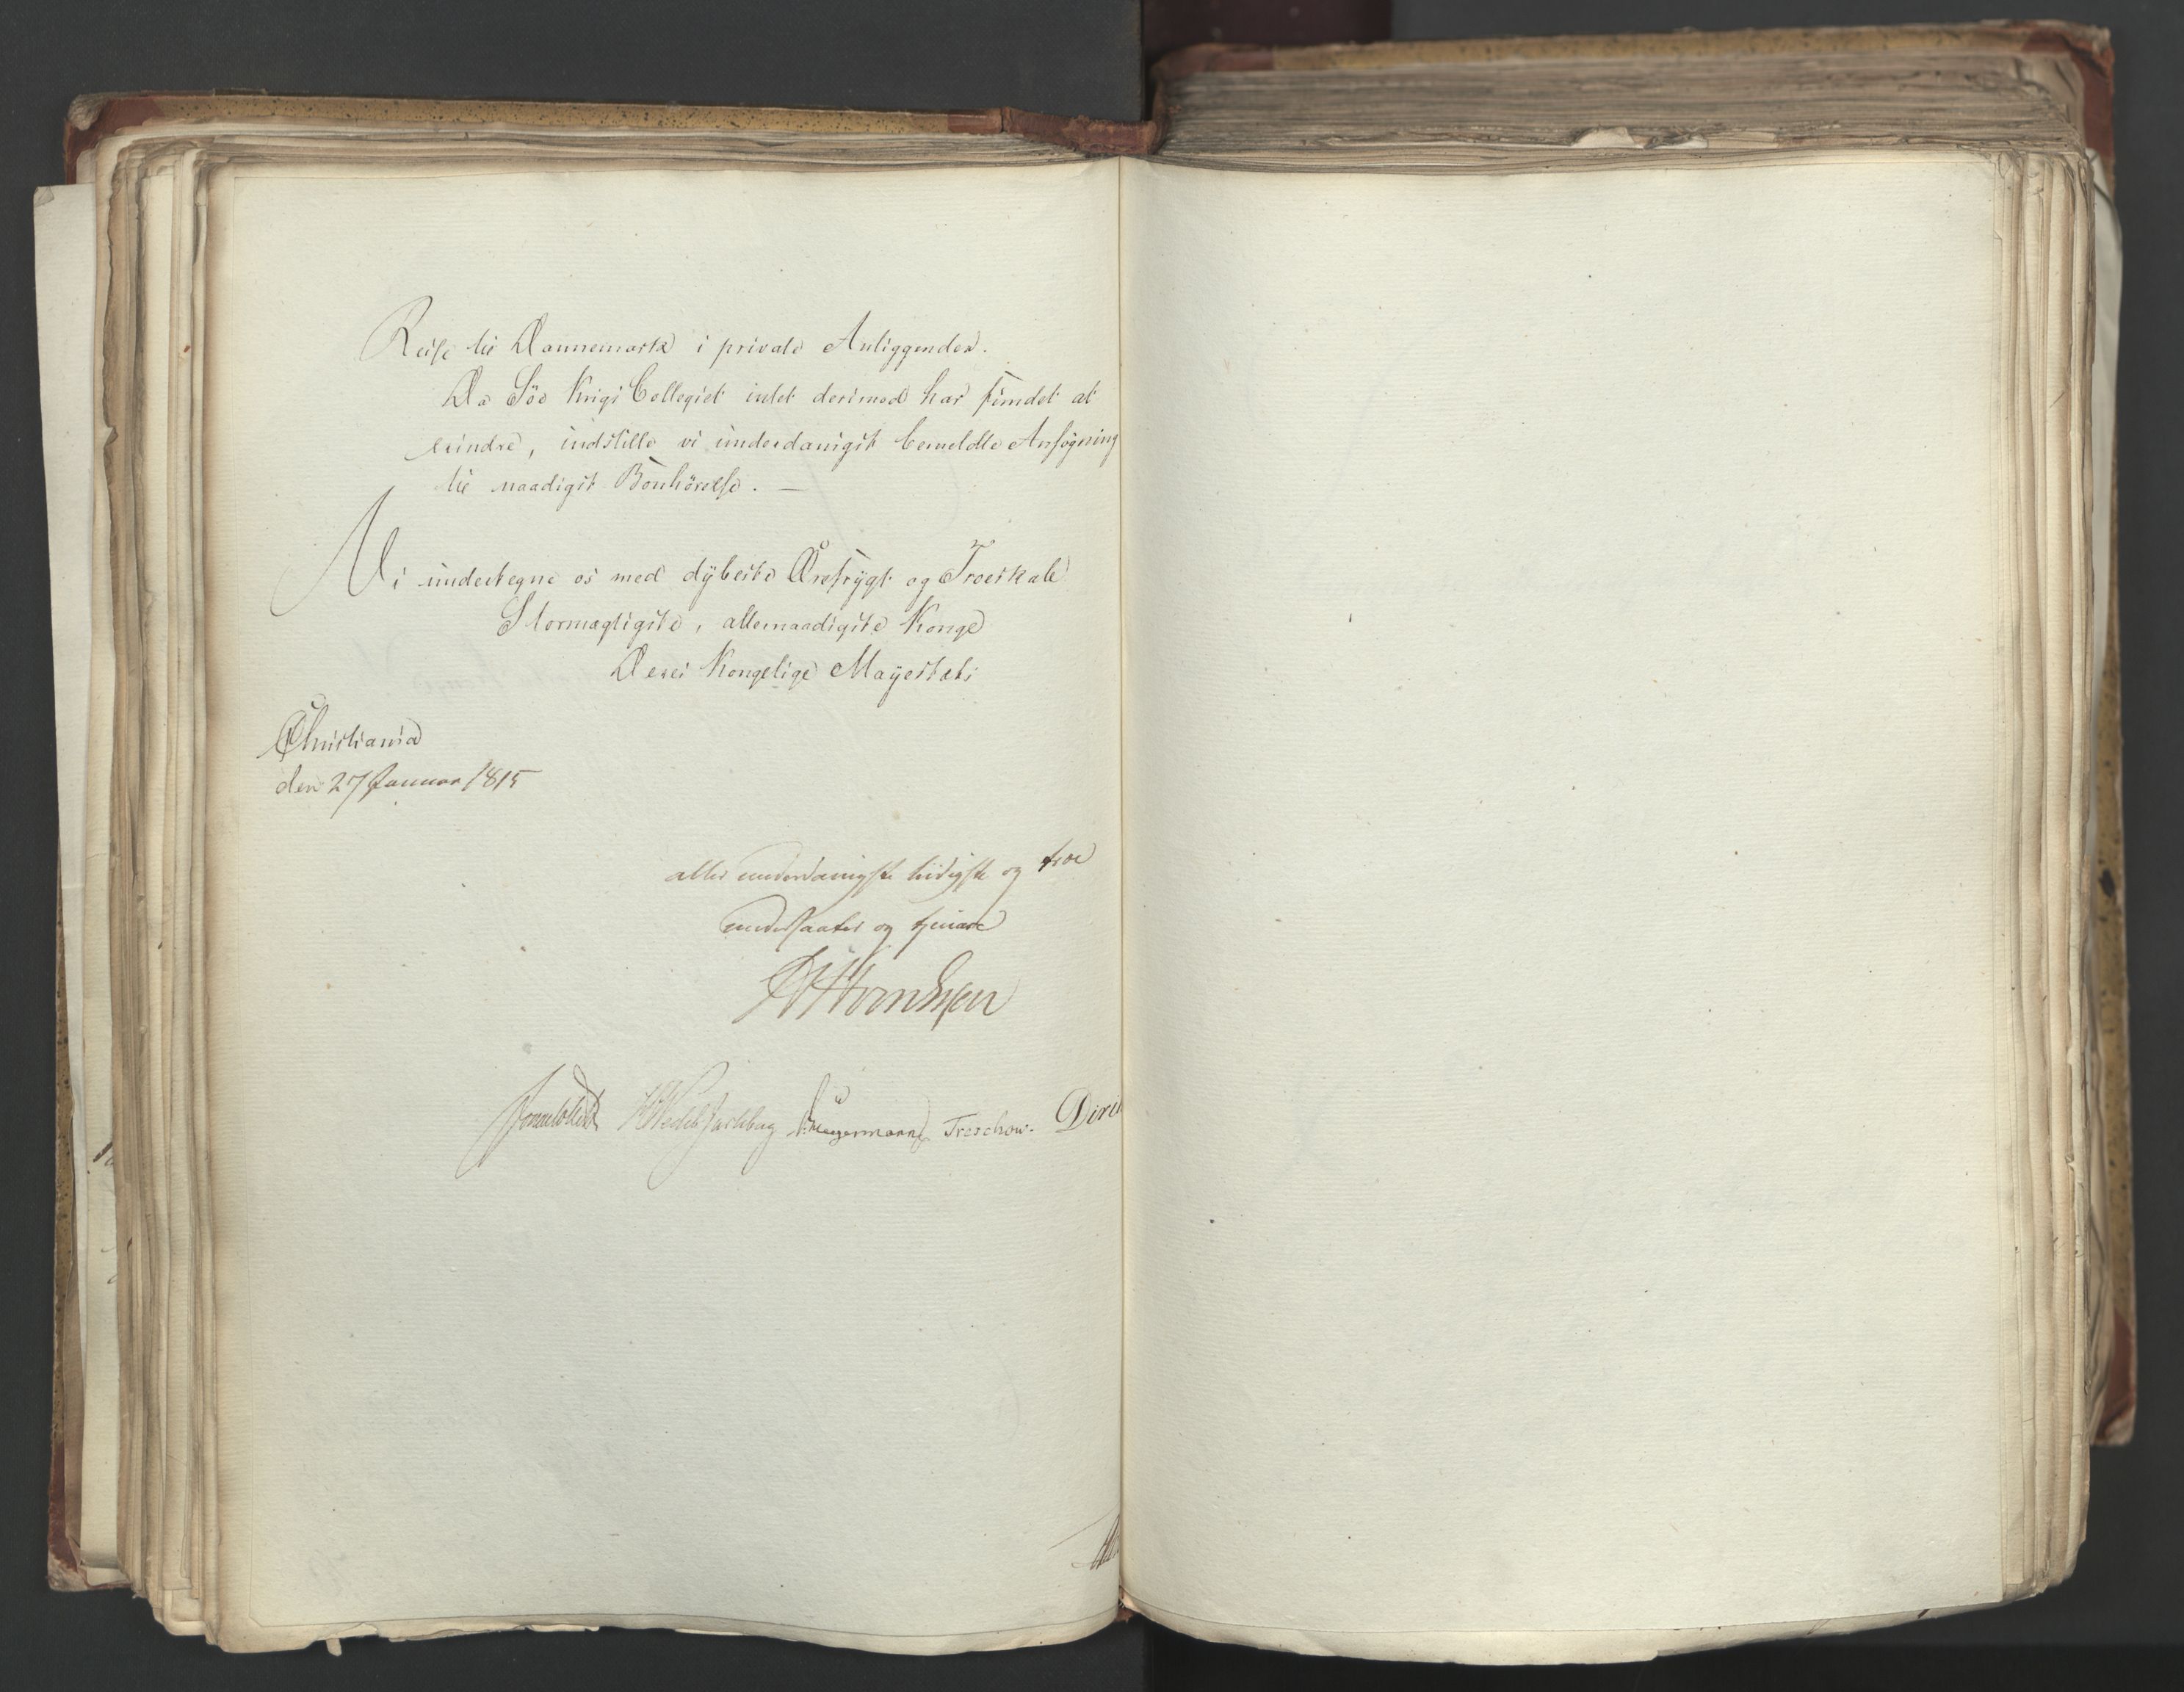 Reise til Dannemark i private Anliggender.
Da Söe Krigs Collegiet intet derimod har fundet at
erindre, indstille vi underdanigst bemeldte Ansögning
til naadigst Bönhörelse. —
Vi undertegne os med dÿbeste Ærefrÿgt og Troeskab
Stormægtigste, allernaadigste Konge
Deres Kongelige Mayestæts
Christiania
den 27 Januar 1815
aller underdanigste lÿdigste og troe
undersaatter og tjenere
Sommerhielm HWedel Jarlsberg Krogermann Treschow. Dirik